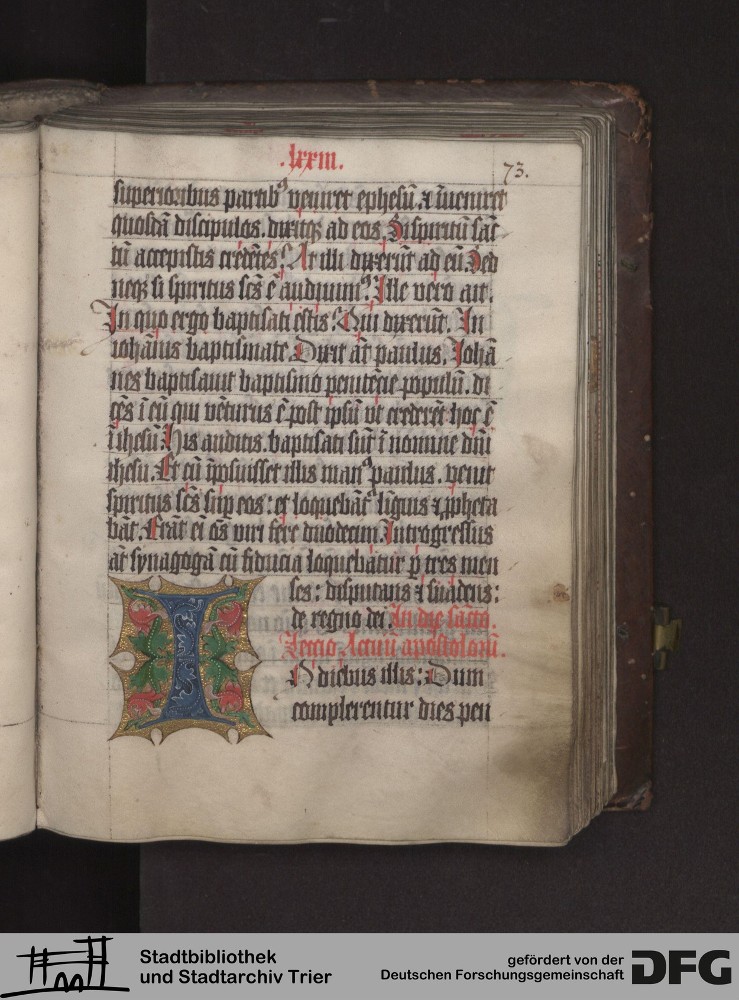 .lxxiii.
73.
superioribus partib⁹ veniret ephesū. ⁊ īueniret
quosdā discipulos. dixitqꝫ ad eos. Si spiritū sāc
tū accepistis credētes? At illi dixerūt ad eū. Sed
neqꝫ si spiritus scs̄ ē audiuim⁹. Ille vero ait.
In quo ergo baptisati estis? Qui dixerūt. In
iohānis baptismate. Dixit āt paulus. Johā
nes baptisauit baptismo penitēcie populū. di
cēs ī eū qui vēturus ē post ipsū vt crederēt hoc ē
ī ihesū. His auditis. baptisati sūt ī nomine dn̄i
ihesu. Et cū īposuisset illis man⁹ paulus. venit
spiritus scs̄ sup eos: et loquebāt᷑ liguis ⁊ ꝓpheta
bāt. Erāt ei os̄ viri fere duodecim. Introgressus
āt synagogā cū fiducia loquebatur p̄ tres men
ses: disputans ⁊ suadens:
de regno dei. In die sācto.
Leccio Actuū apostolorū.
IN diebus illis: Dum
complerentur dies pen
Stadtbibliothek
und Stadtarchiv Trier
gefördert von der
Deutschen Forschungsgemeinschaft
DFG